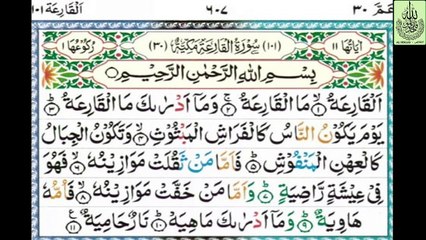 عَمَّ ٣٠ ٦٠٧ اَلْقَارِعَة ١٠١
اٰيَاتُهَا ١١ (١٠١) سُوْرَةُ الْقَارِعَةِ مَكِّيَّةٌ (٣٠) رُكُوْعُهَا ١
بِسْمِ اللّٰهِ الرَّحْمٰنِ الرَّحِيْمِ
اَلْقَارِعَةُ ۙ‏ ١ مَا الْقَارِعَةُ ۚ‏ ٢ وَمَاۤ اَدْرٰىكَ مَا الْقَارِعَةُ ؕ‏ ٣
يَوْمَ يَكُوْنُ النَّاسُ كَالْفَرَاشِ الْمَبْثُوْثِ ۙ‏ ٤ وَتَكُوْنُ الْجِبَالُ
كَالْعِهْنِ الْمَنْفُوْشِ ؕ‏ ٥ فَاَمَّا مَنْ ثَقُلَتْ مَوَازِيْنُهٗ ۙ‏ ٦ فَهُوَ
فِىْ عِيْشَةٍ رَّاضِيَةٍ ؕ‏ ٧ وَاَمَّا مَنْ خَفَّتْ مَوَازِيْنُهٗ ۙ‏ ٨ فَاُمُّهٗ
هَاوِيَةٌ ؕ‏ ٩ وَمَاۤ اَدْرٰىكَ مَا هِيَهْ ؕ‏ ١٠ نَارٌ حَامِيَةٌ ١١